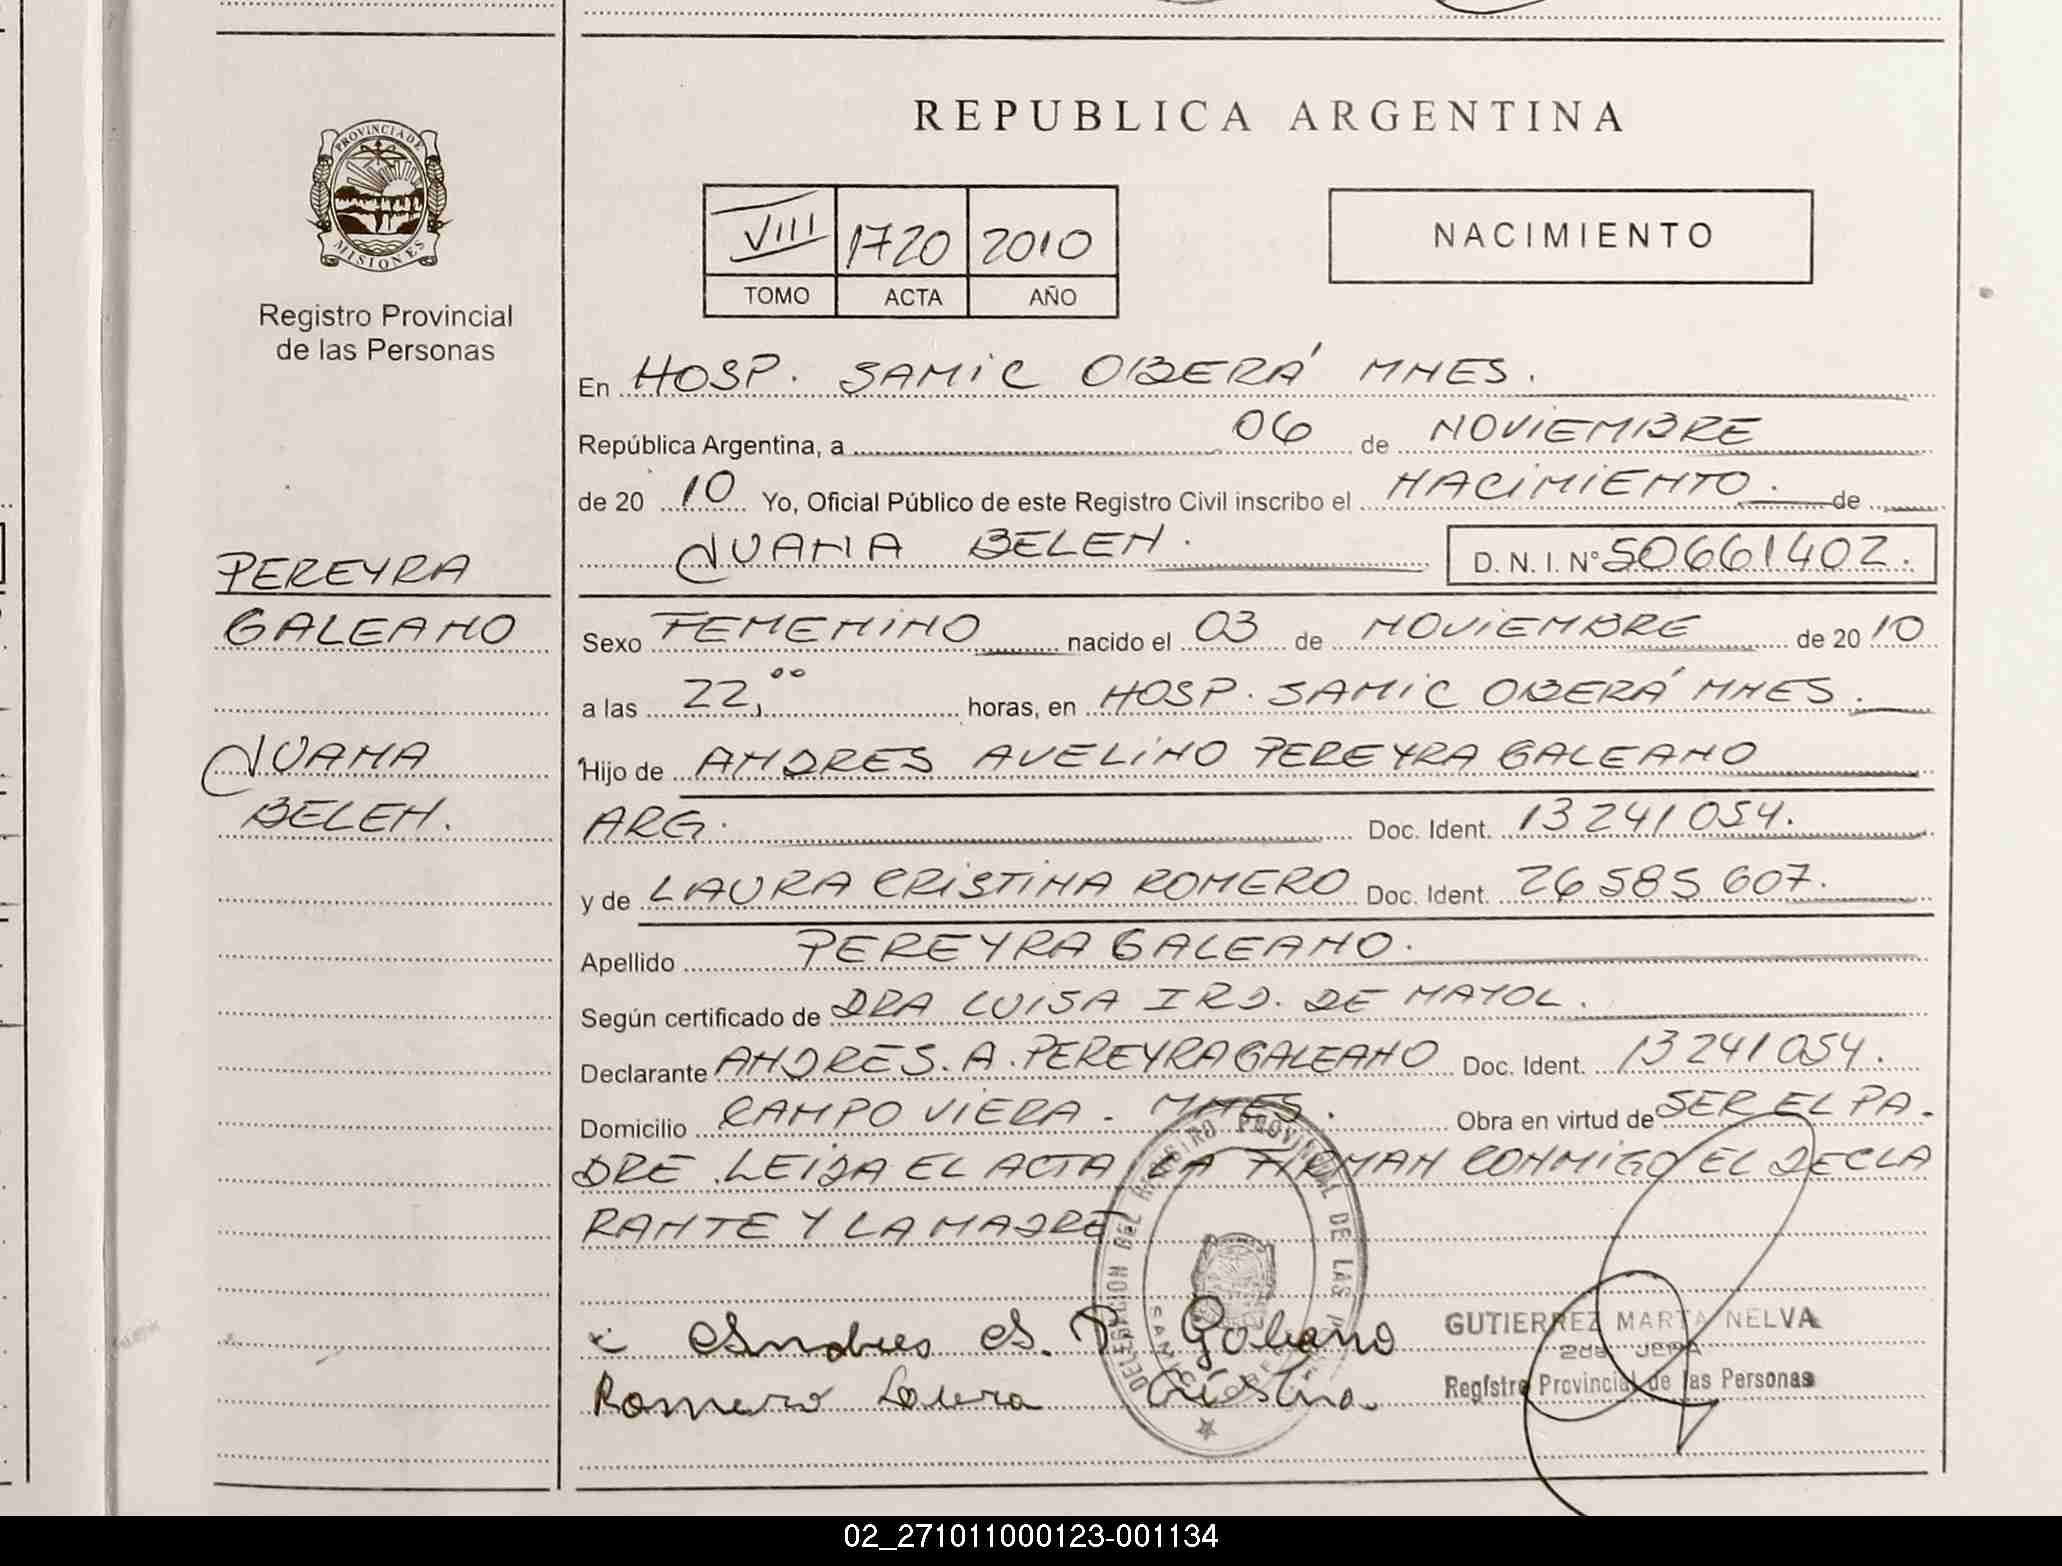 REPUBLICA ARGENTINA
PROVINCIA DE
MISIONES
Registro Provincial
de las Personas
VIII 1720 2010
TOMO ACTA AÑO
NACIMIENTO
En HOSP. SAMIC OBERÁ MNES.
República Argentina, a 06 de NOVIEMBRE
de 20 10 Yo, Oficial Público de este Registro Civil inscribo el NACIMIENTO. de
JUANA BELEN. D. N. I. Nº 50661402.
PEREYRA
GALEANO
JUANA
BELEN.
Sexo FEMENINO nacido el 03 de NOVIEMBRE de 20 10
a las 22,00 horas, en HOSP. SAMIC OBERÁ MNES.
Hijo de ANDRES AVELINO PEREYRA GALEANO
ARG. Doc. Ident. 13241054.
y de LAURA CRISTINA ROMERO Doc. Ident. 26585607.
Apellido PEREYRA GALEANO.
Según certificado de DRA LUISA DE MAYOL.
Declarante ANDRES. A. PEREYRA GALEANO Doc. Ident. 13241054.
Domicilio CAMPO VIERA - MNES. Obra en virtud de SER EL PA-
DRE. LEIDA EL ACTA LA FIRMAN CONMIGO EL DECLA
RANTE Y LA MADRE
DELEGACION DEL REGISTRO PROVINCIAL DE LAS
SAMIC
Andres A. P. Galeano
Romero Laura Cristina.
GUTIERREZ MARTA NELVA
2da JEFA
Registro Provincial de las Personas
02_271011000123-001134